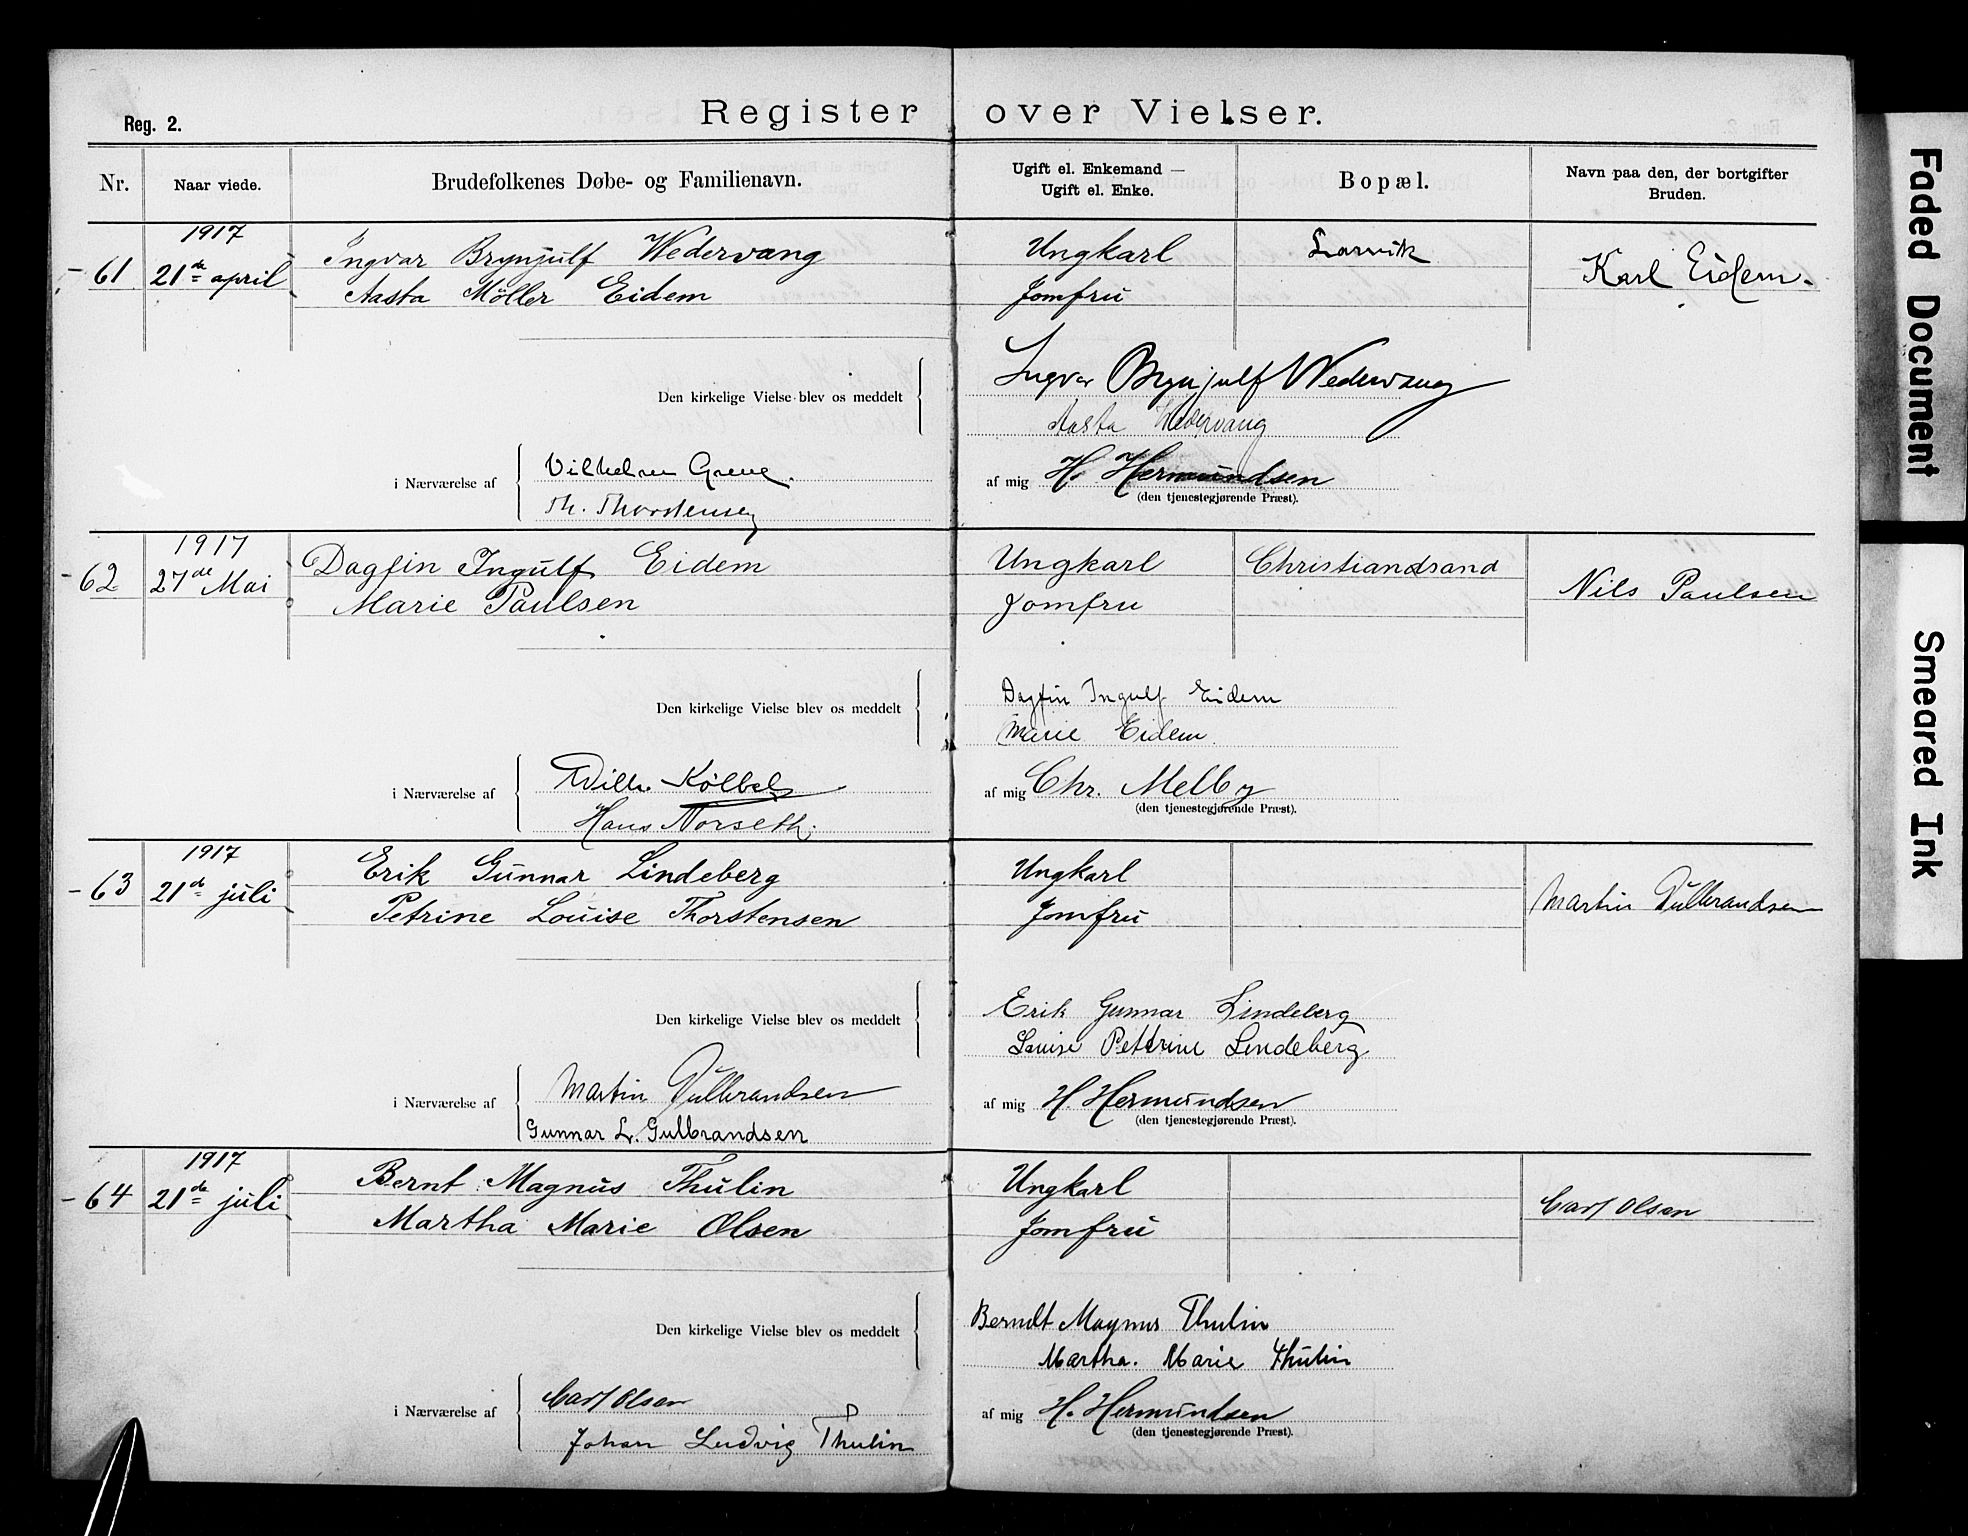 Register over Vielser.
Reg. 2.
Nr.
Naar viede.
Brudefolkenes Døbe- og Familienavn.
Ugift el. Enkemand —
Ugift el. Enke.
Bopæl.
Navn paa den, der bortgifter
Bruden.
1917
61 21de april
Ingvar Brynjulf Wedervang Ungkarl Larvik
Aasta Møller Eidem Jomfru
Karl Eidem.
Den kirkelige Vielse blev os meddelt
Ingvar Brynjulf Wedervang
Aasta Wedervang
i Nærværelse af
Vilhelm
Th. Thorstensen
af mig H. Hermundsen
(den tjenestegjørende Præst).
1917
62 27de Mai
Dagfin Ingulf Eidem Ungkarl Christiandsand
Marie Paulsen Jomfru
Nils Paulsen
Den kirkelige Vielse blev os meddelt
Dagfin Ingulf Eidem
Marie Eidem.
i Nærværelse af
Wilh. Kølbel
Hans Norseth.
af mig Chr. Melby
(den tjenestegjørende Præst).
1917
63 21de juli
Erik Gunnar Lindeberg Ungkarl
Petrine Louise Thorstensen Jomfru
Martin Gulbrandsen
Den kirkelige Vielse blev os meddelt
Erik Gunnar Lindeberg
Louise Petrine Lindeberg
i Nærværelse af
Martin Gulbrandsen
Gunnar L. Gulbrandsen
af mig H. Hermundsen
(den tjenestegjørende Præst).
1917
64 21de juli
Bernt Magnus Thulin Ungkarl
Martha Marie Olsen Jomfru
Carl Olsen
Den kirkelige Vielse blev os meddelt
Berndt Magnus Thulin
Martha. Marie Thulin
i Nærværelse af
Carl Olsen
Johan Ludvig Thulin
af mig H. Hermundsen
(den tjenestegjørende Præst).
Faded Document
Smeared Ink